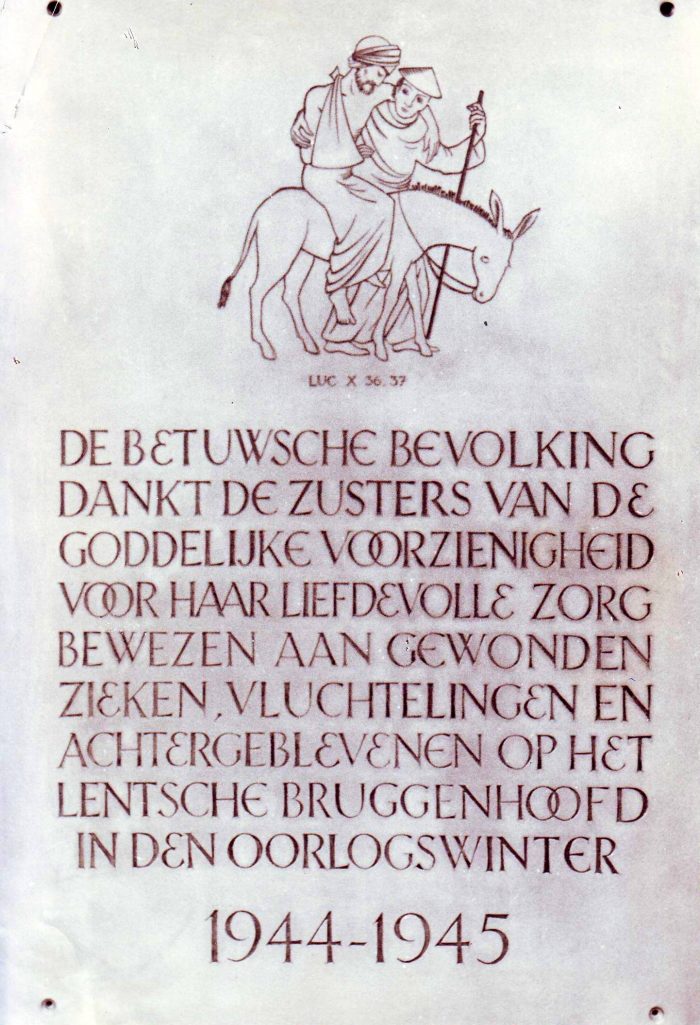 LUC X 36.37
DE BETUWSCHE BEVOLKING
DANKT DE ZUSTERS VAN DE
GODDELIJKE VOORZIENIGHEID
VOOR HAAR LIEFDEVOLLE ZORG
BEWEZEN AAN GEWONDEN
ZIEKEN, VLUCHTELINGEN EN
ACHTERGEBLEVENEN OP HET
LENTSCHE BRUGGENHOOFD
IN DEN OORLOGSWINTER
1944-1945